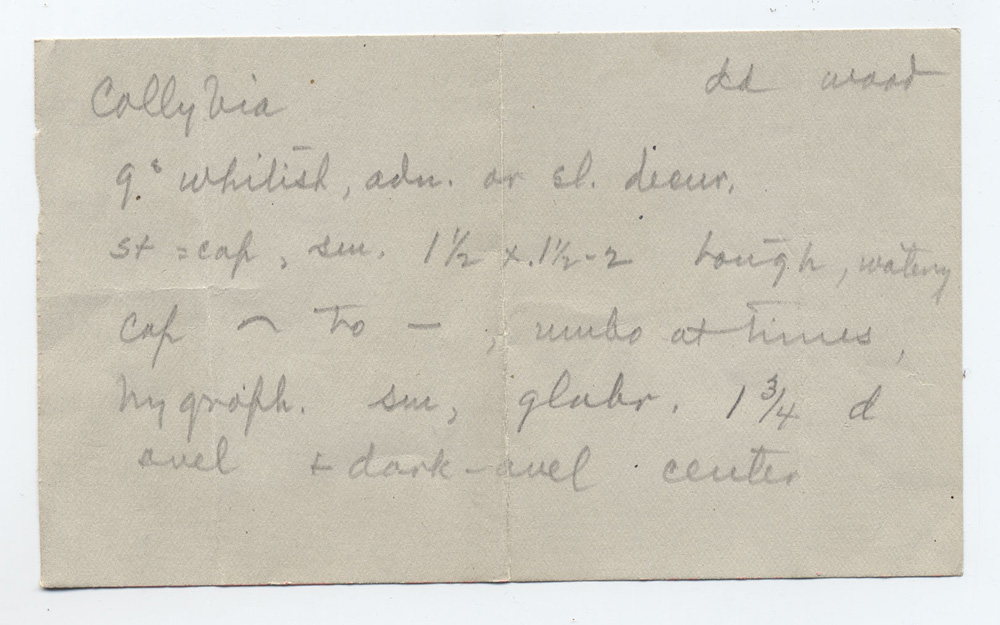 Collybia dd wood
g.s whitish, adn. or sl. decur.
st = cap, sm. 1½ x 1½-2 tough, watery
cap ⌒ to —, umbo at times,
hygroph. sm, glabr. 1¾ d
avel + dark-avel center